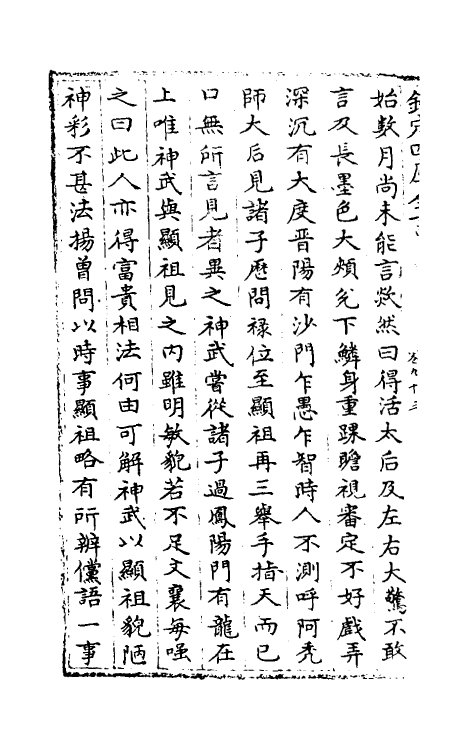 欽定四庫全書
卷九十三
始數月尚未能言欻然曰得活太后及左右大驚不敢
言及長墨色大頰兊下鱗身重踝瞻視審定不好戲弄
深沉有大度晋陽有沙門乍愚乍智時人不測呼阿禿
師太后見諸子歴問禄位至顯祖再三舉手指天而已
口無所言見者異之神武嘗從諸子過鳳陽門有龍在
上唯神武與顯祖見之内雖明敏貌若不足文襄每嗤
之曰此人亦得富貴相法何由可解神武以顯祖貌陋
神彩不甚法揚曾問以時事顯祖略有所辨儻語一事